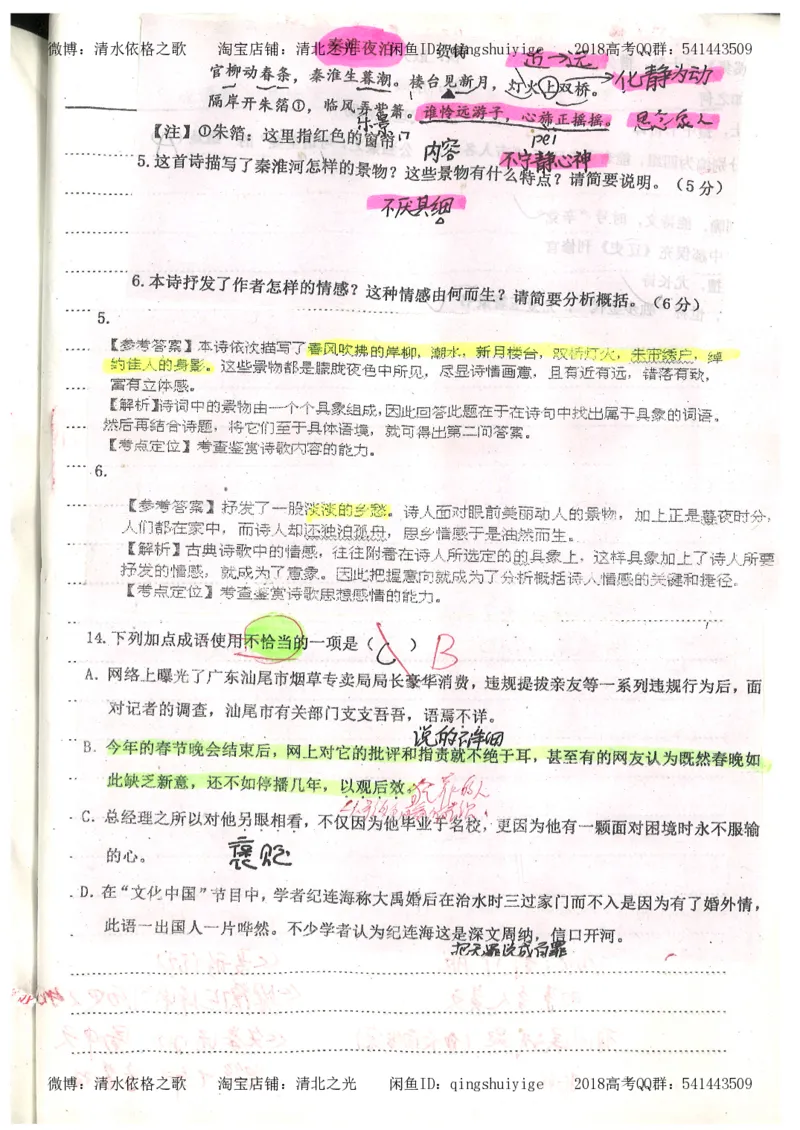 微博：清水依格之歌 淘宝店铺：清北之光 闲鱼ID：qingshuiyige 2018高考QQ群：541443509
秦淮夜泊
近→远
官柳动春条，秦淮生暮潮。楼台见新月，灯火上双桥。
化静为动
隔岸开朱箔①，临风弄紫箫。谁怜远游子，心旆正摇摇。
思念家人
乐景
pei
【注】①朱箔：这里指红色的窗帘
内容
不宁静心神
5.这首诗描写了秦淮河怎样的景物？这些景物有什么特点？请简要说明。（5分）
不厌其细
6.本诗抒发了作者怎样的情感？这种情感由何而生？请简要分析概括。（6分）
5.
【参考答案】本诗依次描写了春风吹拂的岸柳，潮水，新月楼台，双桥灯火，朱帘绣户，绰
约佳人的身影。这些景物都是朦胧夜色中所见，尽显诗情画意，且有近有远，错落有致，
富有立体感。
【解析】诗词中的景物由一个个具象组成，因此回答此题在于在诗句中找出属于具象的词语。
然后再结合诗题，将它们至于具体语境，就可得出第二问答案。
【考点定位】考查鉴赏诗歌内容的能力。
6.
【参考答案】抒发了一股淡淡的乡愁。诗人面对眼前美丽动人的景物，加上正是暮夜时分，
人们都在家中，而诗人却还独泊孤舟，思乡情感于是油然而生。
【解析】古典诗歌中的情感，往往附着在诗人所选定的的具象上，这样具象加上了诗人所要
抒发的情感，就成为了意象。因此把握意向就成为了分析概括诗人情感的关键和捷径。
【考点定位】考查鉴赏诗歌思想感情的能力。
14.下列加点成语使用不恰当的一项是（C）B
A．网络上曝光了广东汕尾市烟草专卖局局长豪华消费，违规提拔亲友等一系列违规行为后，面
对记者的调查，汕尾市有关部门支支吾吾，语焉不详。
说的详细
B．今年的春节晚会结束后，网上对它的批评和指责就不绝于耳，甚至有的网友认为既然春晚如
此缺乏新意，还不如停播几年，以观后效。
犯罪的人
C．总经理之所以对他另眼相看，不仅因为他毕业于名校，更因为他有一颗面对困境时永不服输
的心。
褒贬
D．在“文化中国”节目中，学者纪连海称大禹婚后在治水时三过家门而不入是因为有了婚外情，
此语一出国人一片哗然。不少学者认为纪连海这是深文周纳，信口开河。
把无罪说成有罪
微博：清水依格之歌 淘宝店铺：清北之光 闲鱼ID：qingshuiyige 2018高考QQ群：541443509